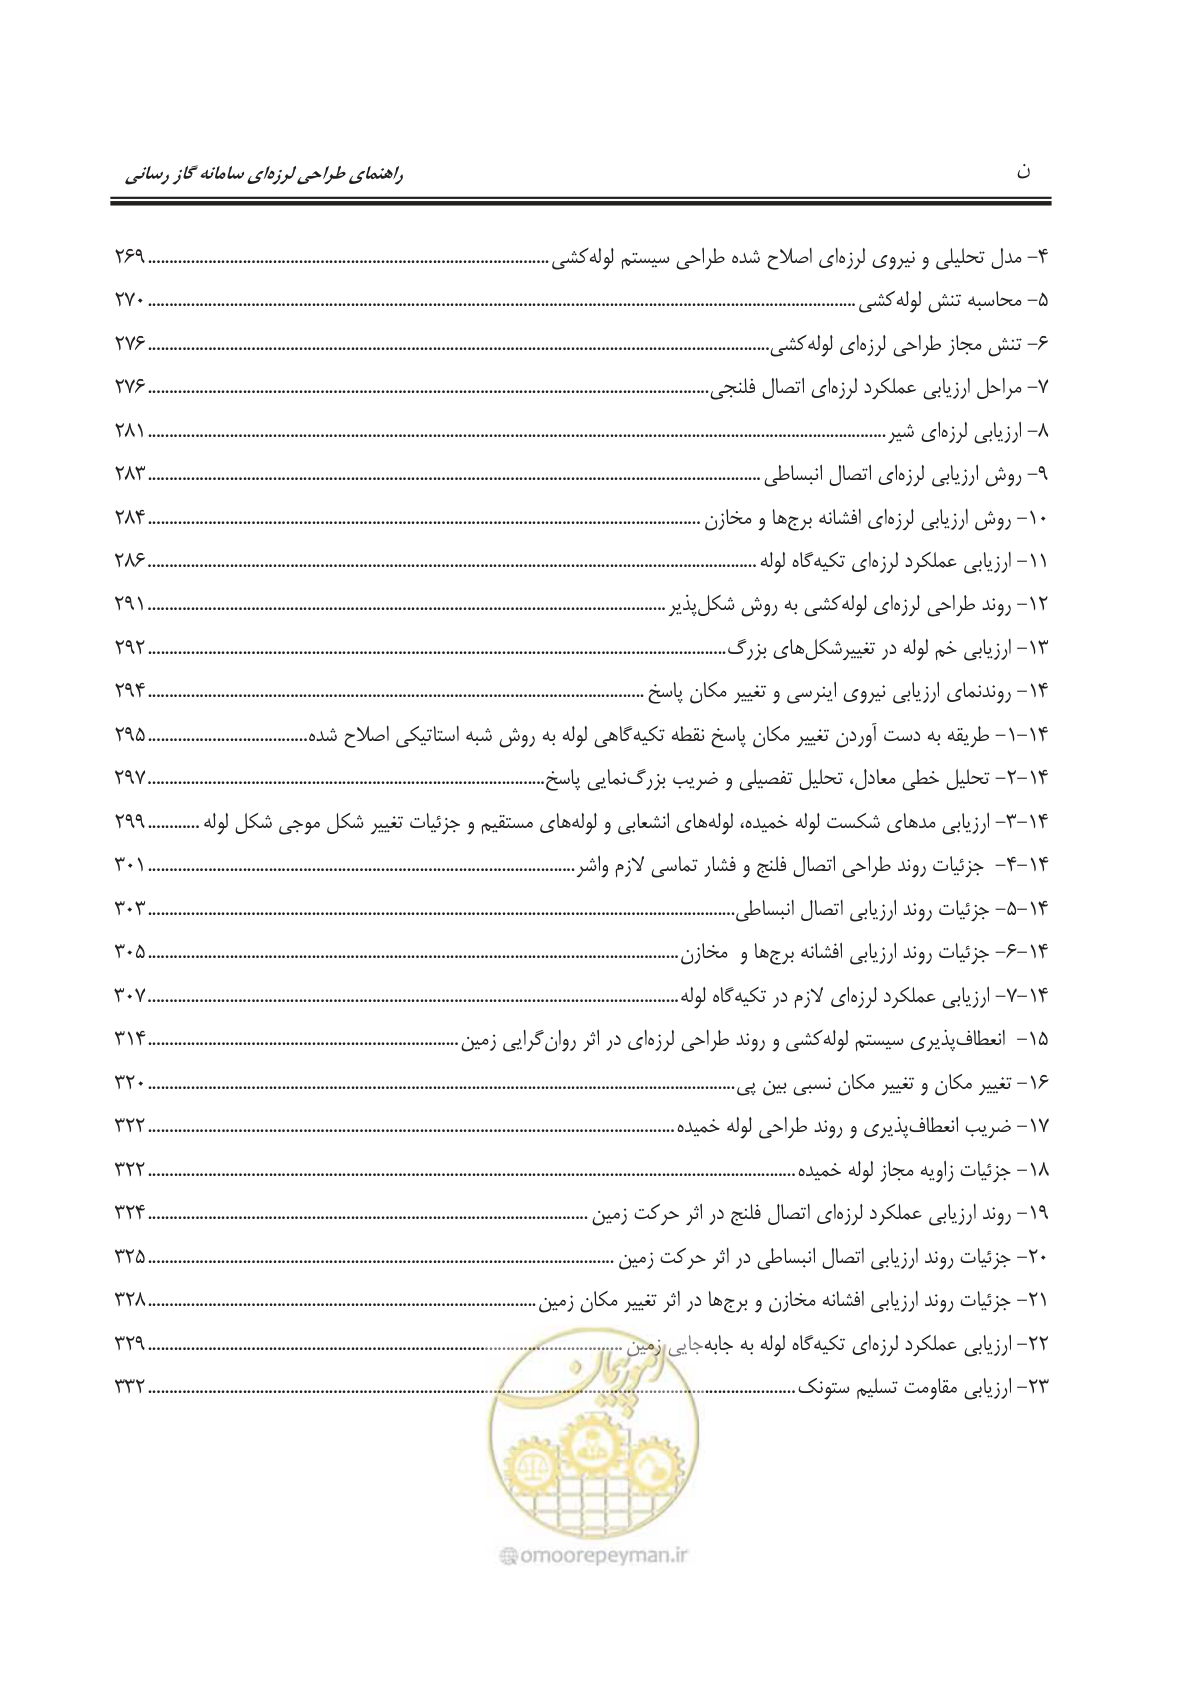 ن
راهنمای طراحی لرزه‌ای سامانه گاز رسانی
۴- مدل تحلیلی و نیروی لرزه‌ای اصلاح شده طراحی سیستم لوله‌کشی ........ ۲۶۹
۵- محاسبه تنش لوله‌کشی ........ ۲۷۰
۶- تنش مجاز طراحی لرزه‌ای لوله‌کشی ........ ۲۷۶
۷- مراحل ارزیابی عملکرد لرزه‌ای اتصال فلنجی ........ ۲۷۶
۸- ارزیابی لرزه‌ای شیر ........ ۲۸۱
۹- روش ارزیابی لرزه‌ای اتصال انبساطی ........ ۲۸۳
۱۰- روش ارزیابی لرزه‌ای افشانه برج‌ها و مخازن ........ ۲۸۴
۱۱- ارزیابی عملکرد لرزه‌ای تکیه‌گاه لوله ........ ۲۸۶
۱۲- روند طراحی لرزه‌ای لوله‌کشی به روش شکل‌پذیر ........ ۲۹۱
۱۳- ارزیابی خم لوله در تغییرشکل‌های بزرگ ........ ۲۹۲
۱۴- روندنمای ارزیابی نیروی اینرسی و تغییر مکان پاسخ ........ ۲۹۴
۱۴-۱- طریقه به دست آوردن تغییر مکان پاسخ نقطه تکیه‌گاهی لوله به روش شبه استاتیکی اصلاح شده ........ ۲۹۵
۱۴-۲- تحلیل خطی معادل، تحلیل تفصیلی و ضریب بزرگ‌نمایی پاسخ ........ ۲۹۷
۱۴-۳- ارزیابی مدهای شکست لوله خمیده، لوله‌های انشعابی و لوله‌های مستقیم و جزئیات تغییر شکل موجی شکل لوله ........ ۲۹۹
۱۴-۴- جزئیات روند طراحی اتصال فلنج و فشار تماسی لازم واشر ........ ۳۰۱
۱۴-۵- جزئیات روند ارزیابی اتصال انبساطی ........ ۳۰۳
۱۴-۶- جزئیات روند ارزیابی افشانه برج‌ها و مخازن ........ ۳۰۵
۱۴-۷- ارزیابی عملکرد لرزه‌ای لازم در تکیه‌گاه لوله ........ ۳۰۷
۱۵- انعطاف‌پذیری سیستم لوله‌کشی و روند طراحی لرزه‌ای در اثر روان‌گرایی زمین ........ ۳۱۴
۱۶- تغییر مکان و تغییر مکان نسبی بین پی ........ ۳۲۰
۱۷- ضریب انعطاف‌پذیری و روند طراحی لوله خمیده ........ ۳۲۲
۱۸- جزئیات زاویه مجاز لوله خمیده ........ ۳۲۲
۱۹- روند ارزیابی عملکرد لرزه‌ای اتصال فلنج در اثر حرکت زمین ........ ۳۲۴
۲۰- جزئیات روند ارزیابی اتصال انبساطی در اثر حرکت زمین ........ ۳۲۵
۲۱- جزئیات روند ارزیابی افشانه مخازن و برج‌ها در اثر تغییر مکان زمین ........ ۳۲۸
۲۲- ارزیابی عملکرد لرزه‌ای تکیه‌گاه لوله به جابه‌جایی زمین ........ ۳۲۹
۲۳- ارزیابی مقاومت تسلیم ستونک ........ ۳۳۲
امور پیمان
@omoorepeyman.ir